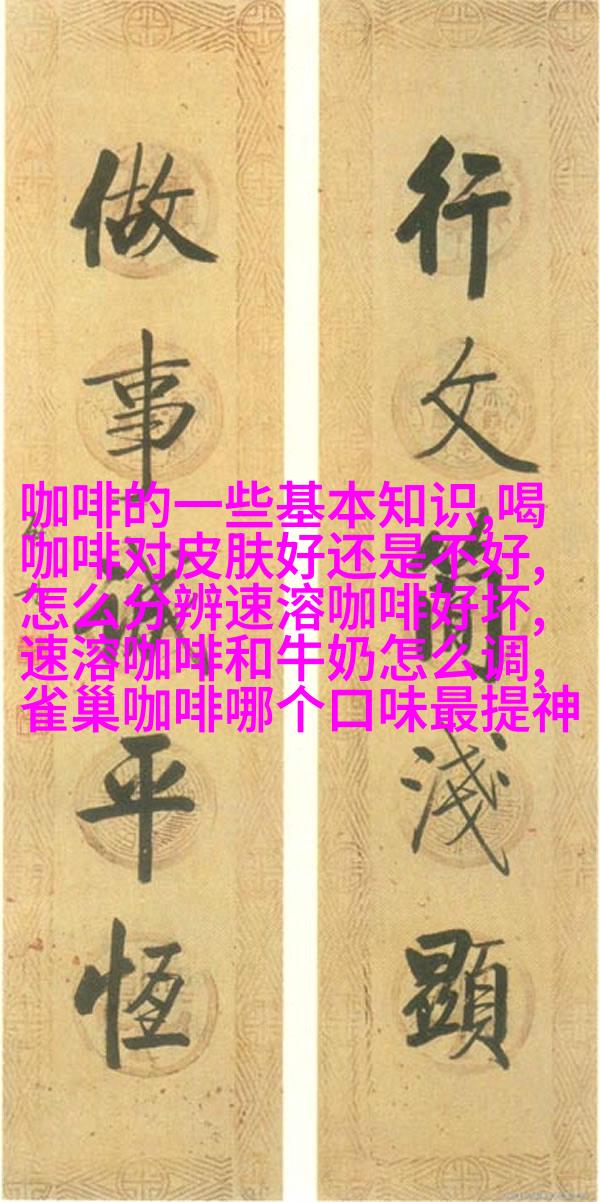 行文簡淺顯
做事誠平恆
咖啡的一些基本知识,喝
咖啡对皮肤好还是不好,
怎么分辨速溶咖啡好坏,
速溶咖啡和牛奶怎么调,
雀巢咖啡哪个口味最提神